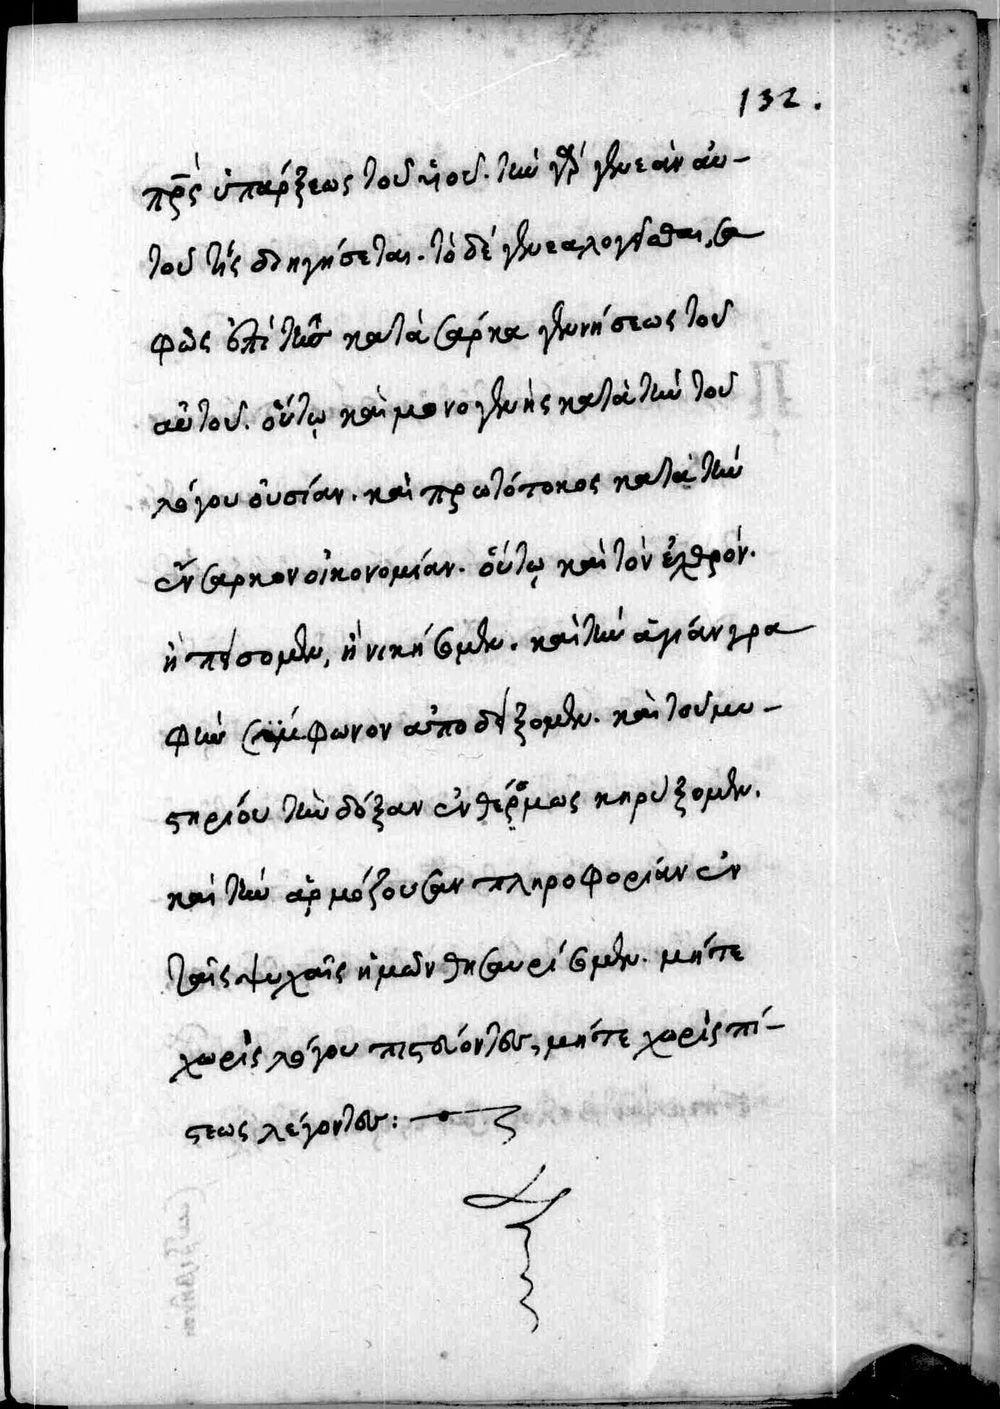 132.
πρ̅ς ὑπάρξεως τοῦ υἱοῦ. τὴν γὰρ γενεὰν αὐ-
τοῦ τίς διηγήσεται. τὸ δὲ γενεαλογεῖσθαι, σα
φῶς ἐπὶ τῆς κατὰ σάρκα γεννήσεως τοῦ
αὐτοῦ. οὕτω καὶ μονογενὴς κατὰ τὴν τοῦ
λόγου οὐσίαν. καὶ πρωτότοκος κατὰ τὴν
ἔνσαρκον οἰκονομίαν. οὕτω καὶ τὸν ἐχθρόν.
ἢ πείσομεν, ἢ νικήσωμεν. καὶ τὴν ἁγίαν γρα
φὴν σύμφωνον ἀποδείξομεν. καὶ τοῦ μυ-
στηρίου τὴν δόξαν ἐνθέρμως κηρύξομεν.
καὶ τὴν ἁρμόζουσαν πληροφορίαν ἐν
ταῖς ψυχαῖς ἡμῶν θησαυρίσωμεν. μήτε
χωρὶς λόγου πιστεύοντες, μήτε χωρὶς πί-
στεως λέγοντες: